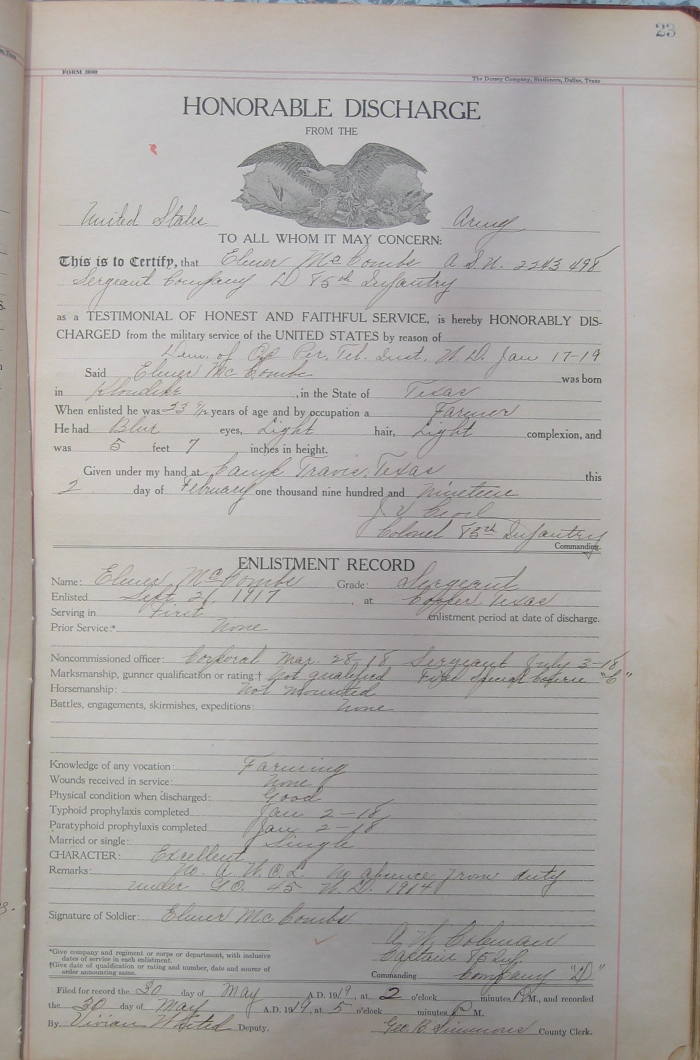 23
FORM 3090
The Dorsey Company, Stationers, Dallas, Texas
HONORABLE DISCHARGE
FROM THE
United States Army
TO ALL WHOM IT MAY CONCERN:
This is to Certify, that Elmer McCombs A.S.N. 2243498
Sergeant Company D 85th Infantry
as a TESTIMONIAL OF HONEST AND FAITHFUL SERVICE, is hereby HONORABLY DIS-
CHARGED from the military service of the UNITED STATES by reason of
of Per. Tel. Inst. W.D. Jan 17-19
Said Elmer McCombs was born
in Klondike, in the State of Texas
When enlisted he was 23 years of age and by occupation a Farmer
He had Blue eyes, Light hair, Light complexion, and
was 5 feet 7 inches in height.
Given under my hand at Camp Travis, Texas this
2 day of February one thousand nine hundred and nineteen
J.
Colonel 85th Infantry
Commanding.
ENLISTMENT RECORD
Name: Elmer McCombs Grade: Sergeant
Enlisted Sept 21, 1917, at Cooper Texas
Serving in First enlistment period at date of discharge.
Prior Service:* None
Noncommissioned officer: Corporal Mar. 28-18 Sergeant July 3-18
Marksmanship, gunner qualification or rating:† Not qualified Special Course "C"
Horsemanship: Not mounted
Battles, engagements, skirmishes, expeditions: None
Knowledge of any vocation: Farming
Wounds received in service: None
Physical condition when discharged: Good
Typhoid prophylaxis completed Jan 2-18
Paratyphoid prophylaxis completed Jan 2-18
Married or single: Single
CHARACTER: Excellent
Remarks: No. A.W.O.L. No absence from duty
under G.O. 45 W.D. 1914
Signature of Soldier: Elmer McCombs
A. W. Coleman
Captain 85 Inf.
Commanding Company "D"
*Give company and regiment or corps or department, with inclusive
dates of service in each enlistment.
†Give date of qualification or rating and number, date and source of
order announcing same.
Filed for record the 30 day of May A.D. 1919, at 2 o'clock minutes P.M., and recorded
the 30 day of May A.D. 1919, at 5 o'clock minutes P.M.
By Vivian Deputy. Geo. B. Simmons County Clerk.